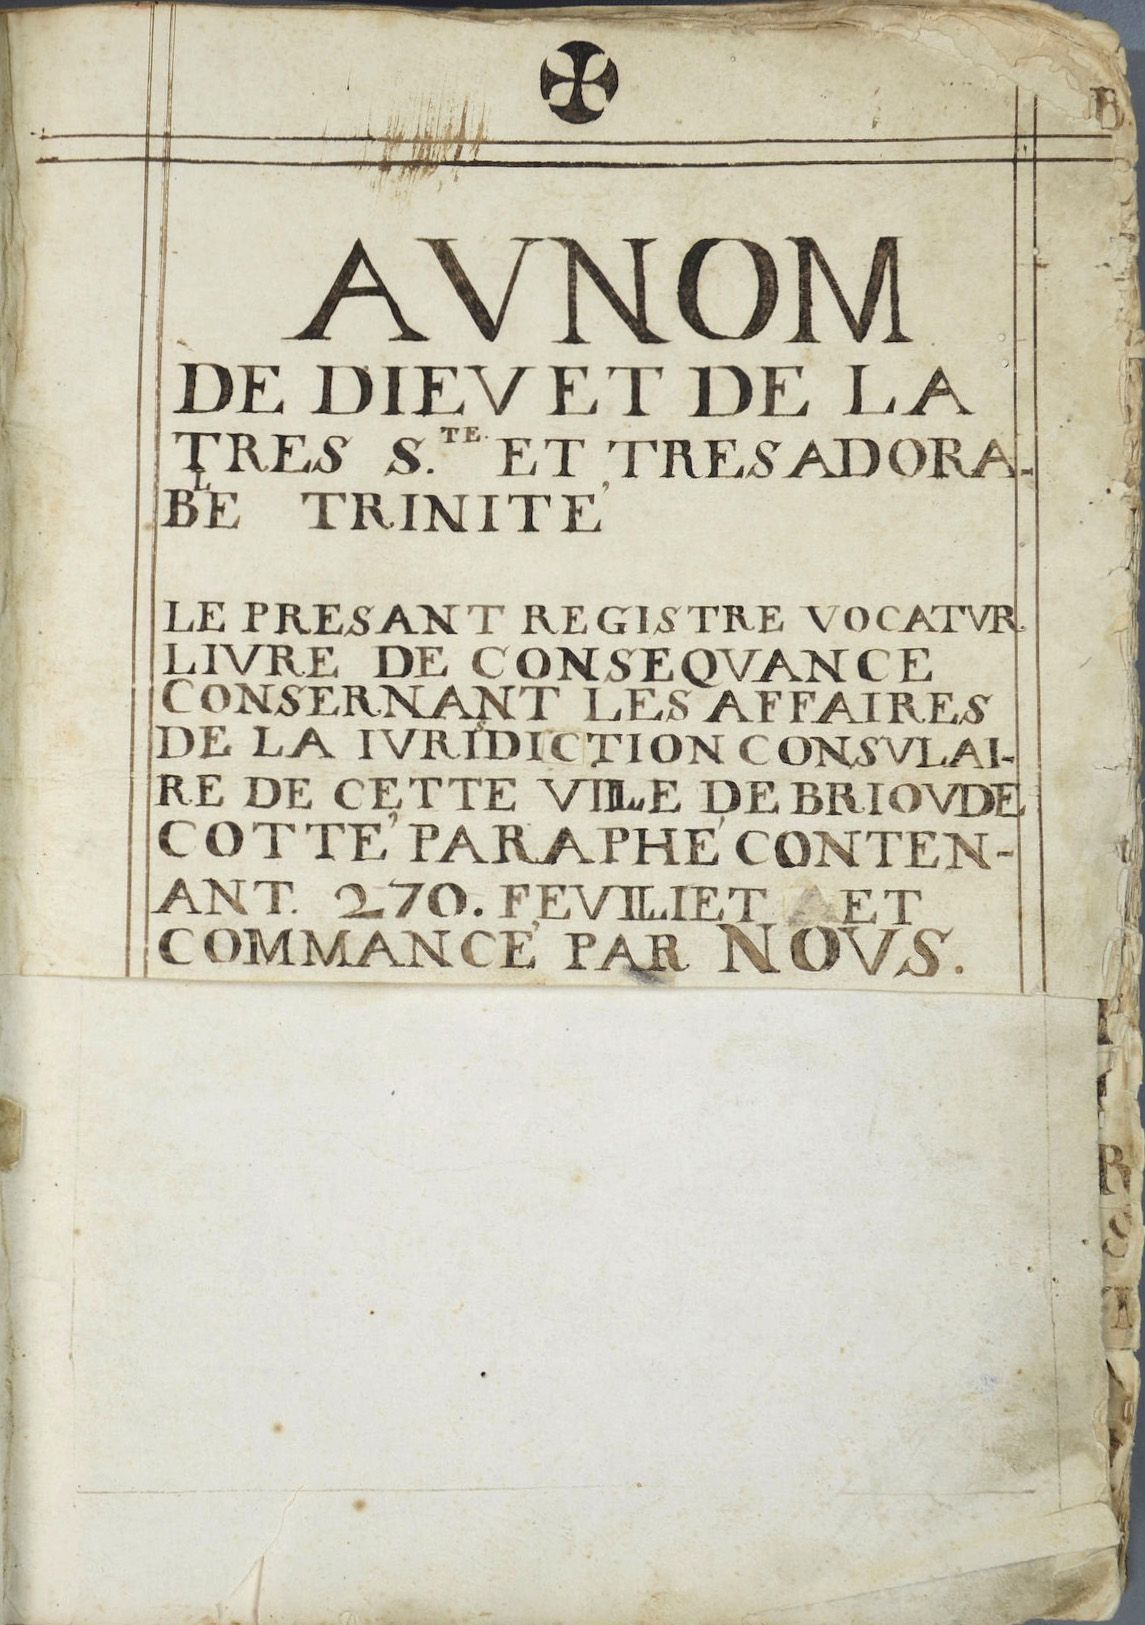 ✠
AVNOM
DE DIEV ET DE LA
TRES S.TE. ET TRES ADORA-
BLE TRINITE'
LE PRESANT REGISTRE VOCATVR
LIVRE DE CONSEQVANCE
CONSERNANT LES AFFAIRES
DE LA IVRISDICTION CONSVLAI-
RE DE CETTE VILLE DE BRIOVDE
COTTE' PARAPHE' CONTEN-
ANT. 270. FEVILLIET ET
COMMANCE' PAR NOVS.
B
R
S
T